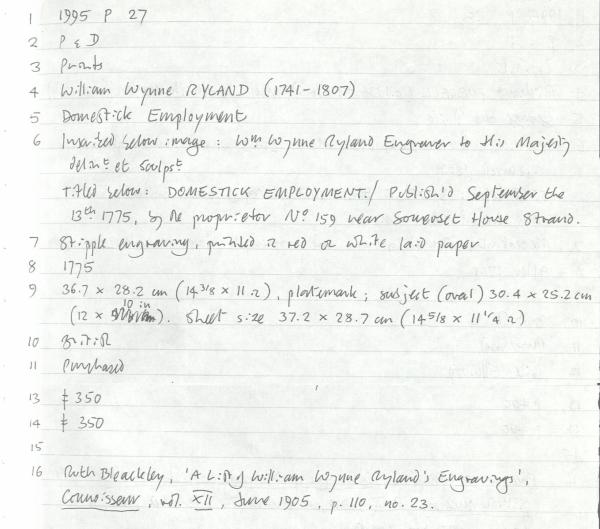 1 1995 P 27
2 P & D
3 Prints
4 William Wynne RYLAND (1741-1807)
5 Domestick Employment
6 Inscribed below image: Wm Wynne Ryland Engraver to His Majesty
delint et sculpst
Titled below: DOMESTICK EMPLOYMENT./ Publish'd September the
13th 1775, by the proprietor No 159 near Somerset House Strand.
7 Stipple engraving, printed in red on white laid paper
8 1775
9 36.7 x 28.2 cm (14 3/8 x 11 in), platemark; subject (oval) 30.4 x 25.2 cm
(12 x 10 in). Sheet size 37.2 x 28.7 cm (14 5/8 x 11 1/4 in)
10 British
11 Purchased
13 £ 350
14 £ 350
15
16 Ruth Bleackley, 'A List of William Wynne Ryland's Engravings',
Connoisseur, vol. XII, June 1905, p. 110, no. 23.